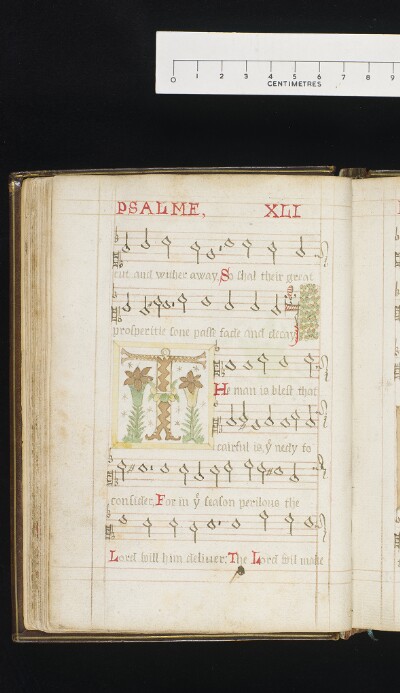 0 1 2 3 4 5 6 7 8 9
CENTIMETRES
PSALME, XLI
cut and wither away, So shal their great
prosperitie sone passe fade and decay
T He man is blest that
cairful is, yͤ nedy to
consider, For in yͤ season perilous the
Lord will him deliuer: The Lord wil make